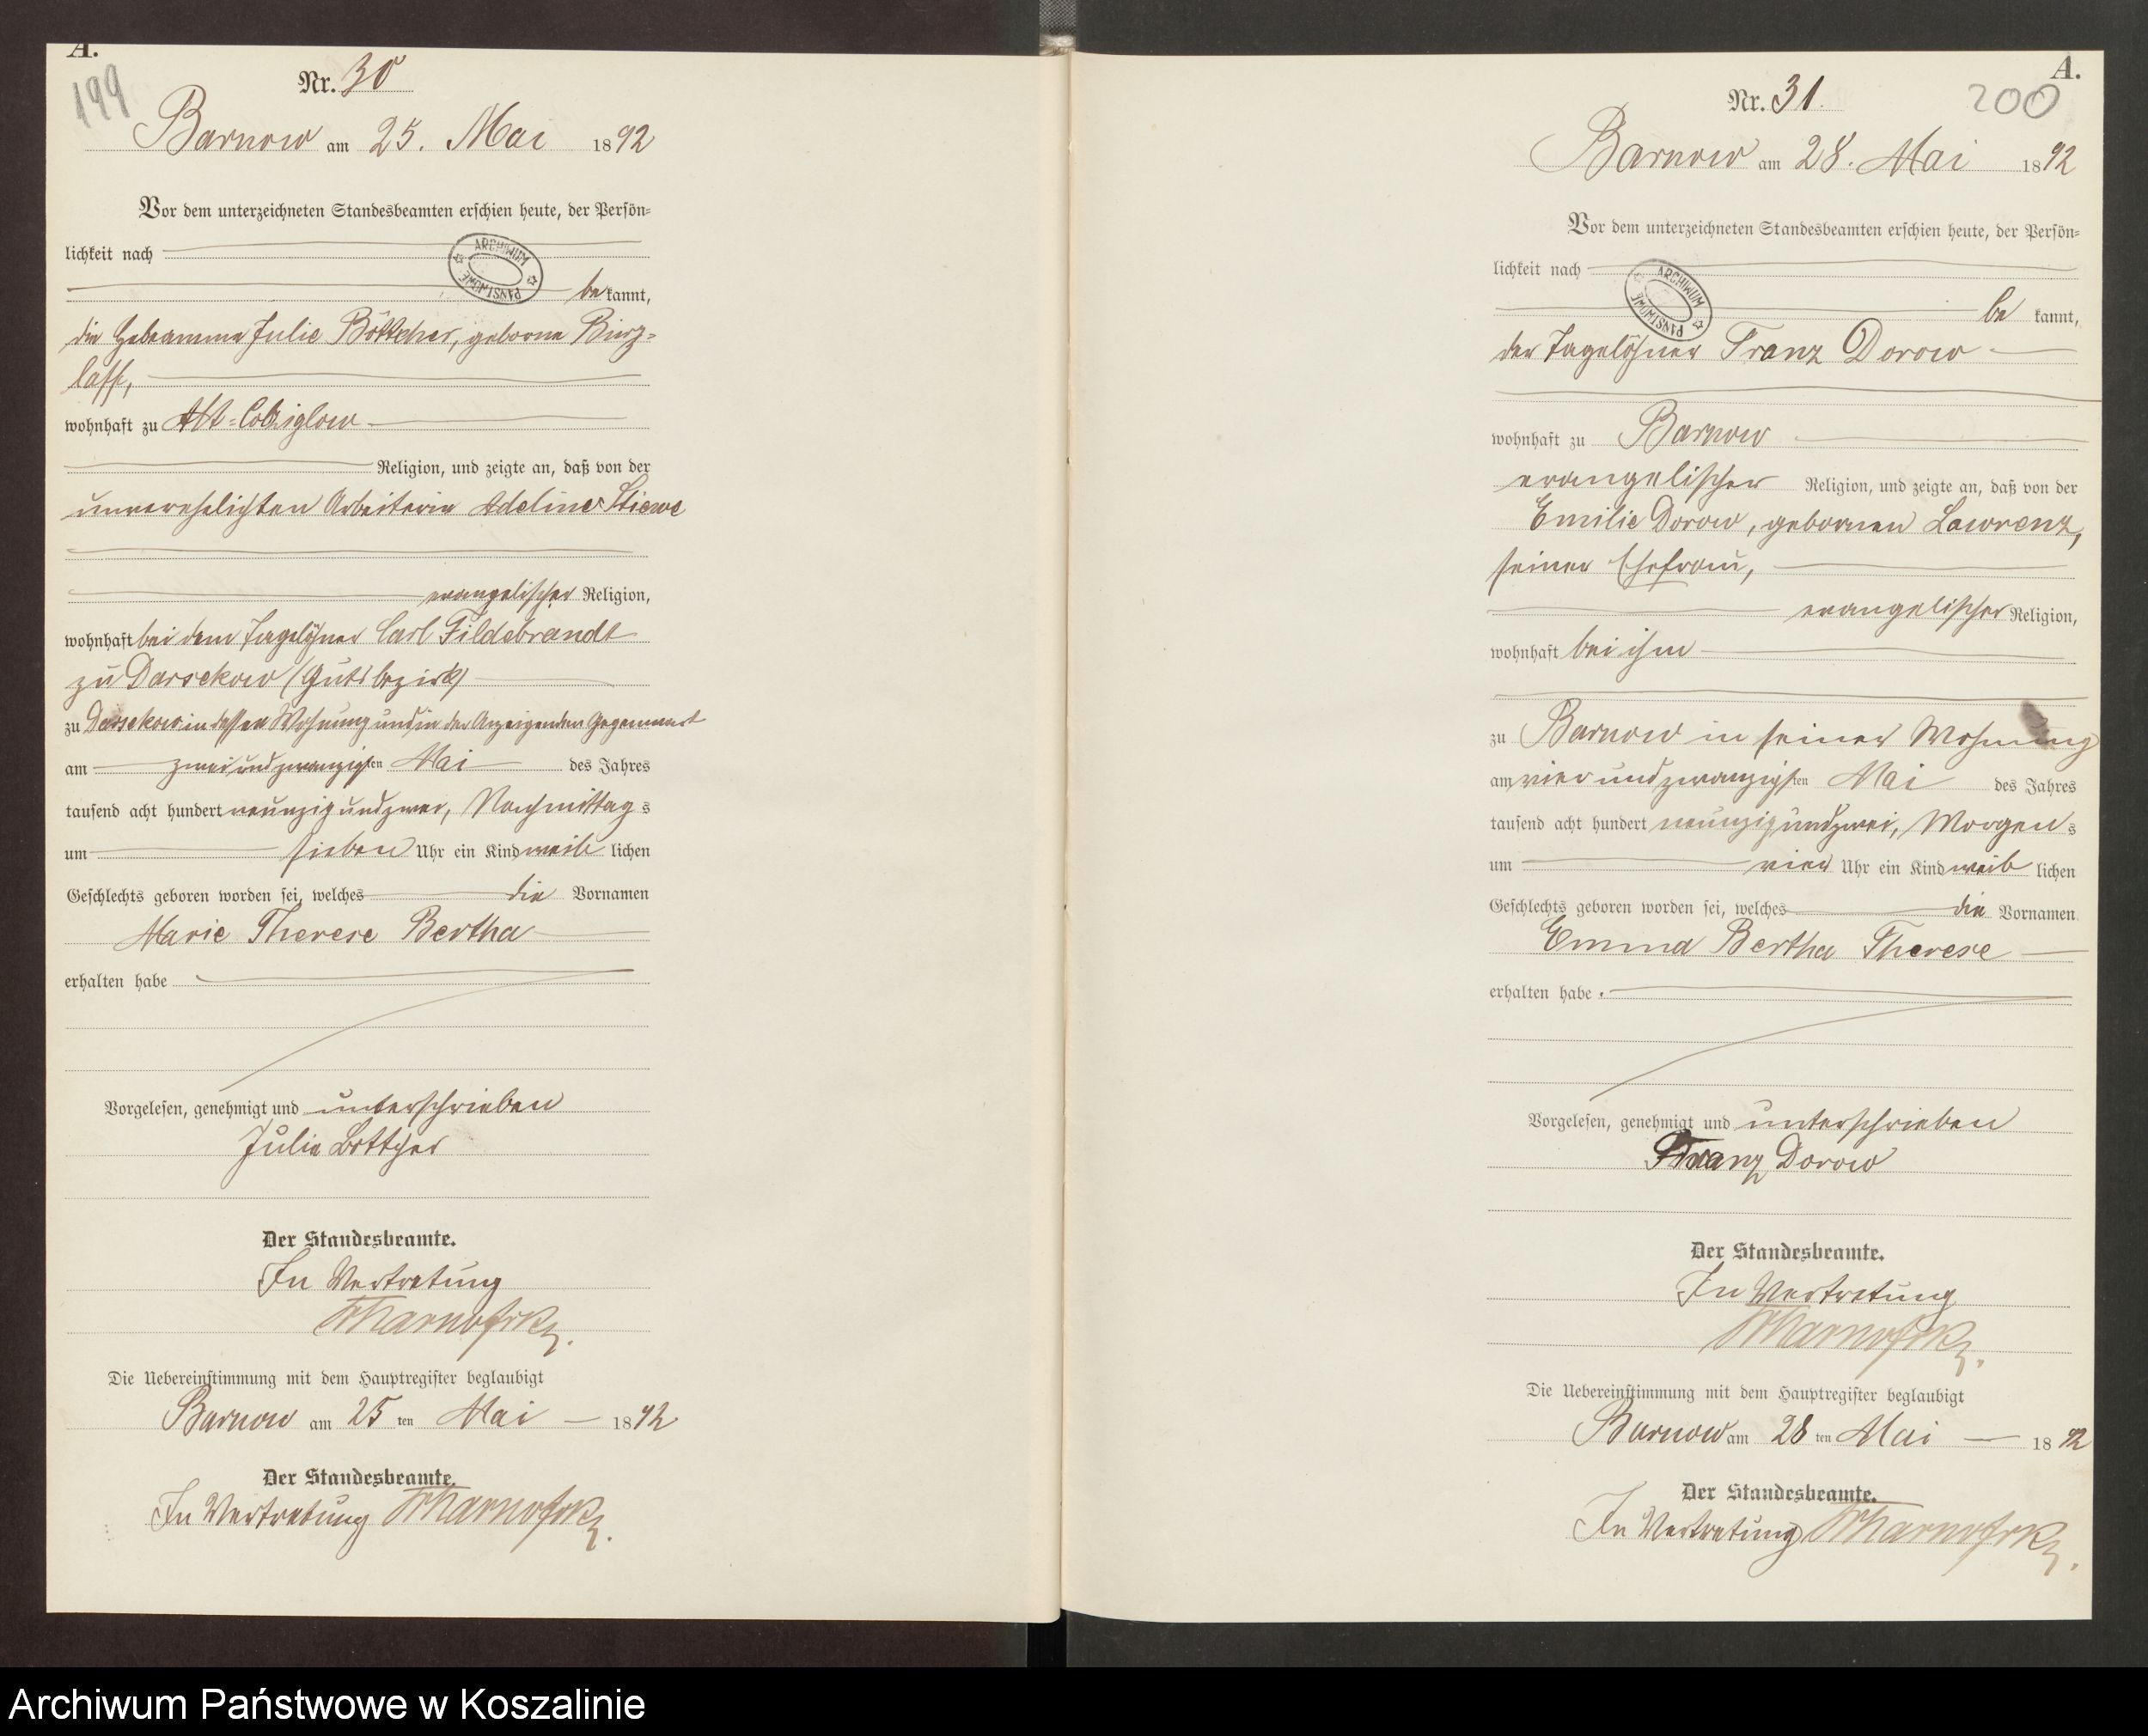 A.
199
Nr. 30
Barnow am 25. Mai 1892
Vor dem unterzeichneten Standesbeamten erschien heute, der Persön-
lichkeit nach
ARCHIWUM PAŃSTWOWE
bekannt,
die Hebeamme Julie Böttcher, geborne Birz-
laff,
wohnhaft zu Alt-Colziglow
Religion, und zeigte an, daß von der
unverehelichten Arbeiterin Adeline Stiewe
evangelischer Religion,
wohnhaft bei dem Tagelöhner Carl Fildebrandt
zu Darsekow (Gutsbezirk)
zu Darsekow in dessen Wohnung und in der Anzeigenden Gegenwart
am zwei und zwanzigsten Mai des Jahres
tausend acht hundert neunzig und zwei, Nachmittags
um sieben Uhr ein Kind weiblichen
Geschlechts geboren worden sei, welches die Vornamen
Marie Therese Bertha
erhalten habe
Vorgelesen, genehmigt und unterschrieben
Julie Bottcher
Der Standesbeamte.
In Vertretung
Die Uebereinstimmung mit dem Hauptregister beglaubigt
Barnow am 25 ten Mai 1892
Der Standesbeamte.
In Vertretung
A.
200
Nr. 31.
Barnow am 28. Mai 1892
Vor dem unterzeichneten Standesbeamten erschien heute, der Persön-
lichkeit nach
ARCHIWUM PAŃSTWOWE
be kannt,
der Tagelöhner Franz Dorow
wohnhaft zu Barnow
evangelischer Religion, und zeigte an, daß von der
Emilie Dorow, gebornen Lawrenz,
seiner Ehefrau,
evangelischer Religion,
wohnhaft bei ihm
zu Barnow in seiner Wohnung
am vier und zwanzigsten Mai des Jahres
tausend acht hundert neunzig und zwei, Morgens
um vier Uhr ein Kind weiblichen
Geschlechts geboren worden sei, welches die Vornamen
Emma Bertha Therese
erhalten habe.
Vorgelesen, genehmigt und unterschrieben
Franz Dorow
Der Standesbeamte.
In Vertretung
Die Uebereinstimmung mit dem Hauptregister beglaubigt
Barnow am 28 ten Mai 1892
Der Standesbeamte.
In Vertretung
Archiwum Państwowe w Koszalinie